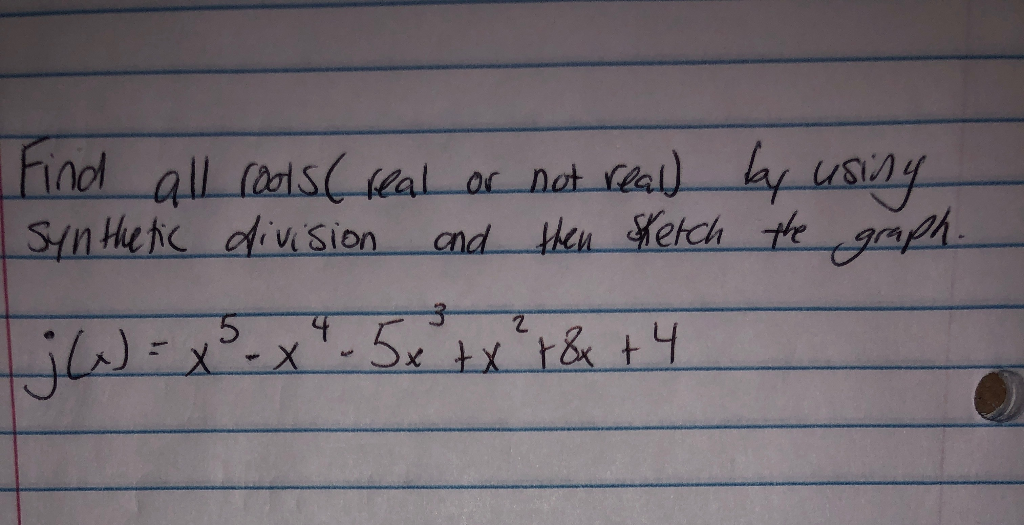 Find all roots (real or not real) by using
synthetic division and then sketch the graph.
j(x) = x⁵ - x⁴ - 5x³ + x² + 8x + 4